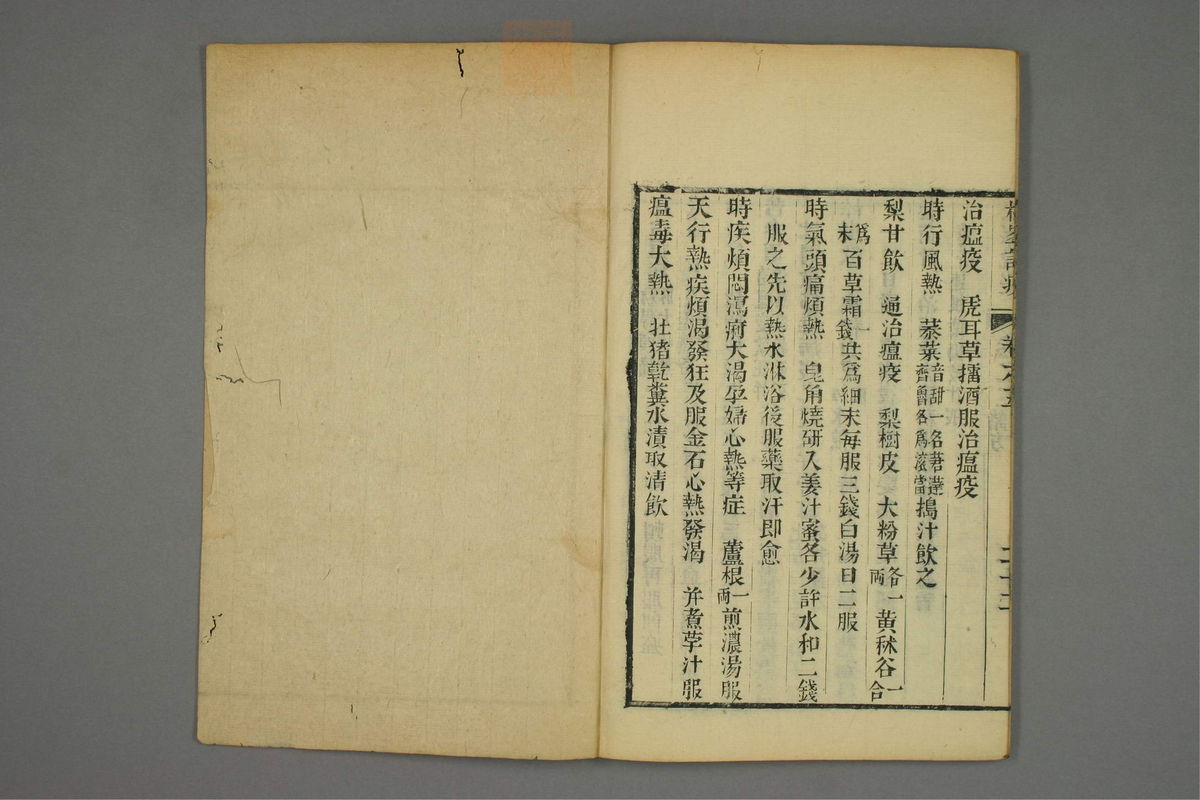 治瘟疫　虎耳草擂酒服治瘟疫
時行風熱　菾菜音甜一名莙薘齊魯各爲滚當搗汁飲之
梨甘飲　通治瘟疫　梨樹皮　大粉草各一兩　黃秫谷一合
爲末百草霜一錢共爲細末每服三錢白湯日二服
時氣頭痛煩熱　皂角燒研入姜汁蜜各少許水和二錢
服之先以熱水淋浴後服藥取汗即愈
時疾煩悶瀉痢大渴孕婦心熱等症　蘆根一兩煎濃湯服
天行熱疾煩渴發狂及服金石心熱發渴　并煮苧汁服
瘟毒大熱　壯猪乾糞水漬取清飲